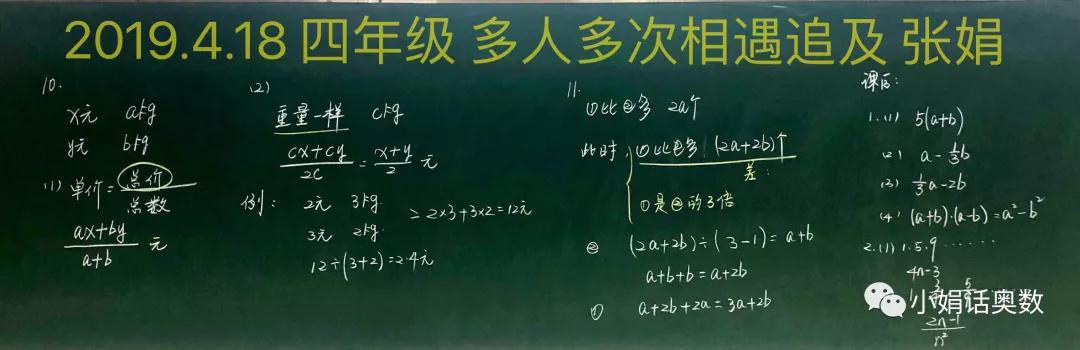 2019.4.18 四年级 多人多次相遇追及 张娟
10.
x元 akg
y元 bkg
(1) 单价=总价/总数
(ax+by)/(a+b) 元
(2)
重量一样 ckg
(cx+cy)/2c = (x+y)/2 元
例: 2元 3kg
3元 2kg
2×3+3×2=12元
12÷(3+2)=2.4元
11.
①比②多 2a个
此时 ①比②多 (2a+2b)个
差:
①是②的3倍
② (2a+2b)÷(3-1)=a+b
a+b+b=a+2b
① a+2b+2a=3a+2b
课后:
1.(1) 5(a+b)
(2) a-1/3b
(3) 1/3a-2b
(4) (a+b)·(a-b)=a²-b²
2.(1) 1.5.9......
4n-3
(2n-1)/n²
小娟话奥数